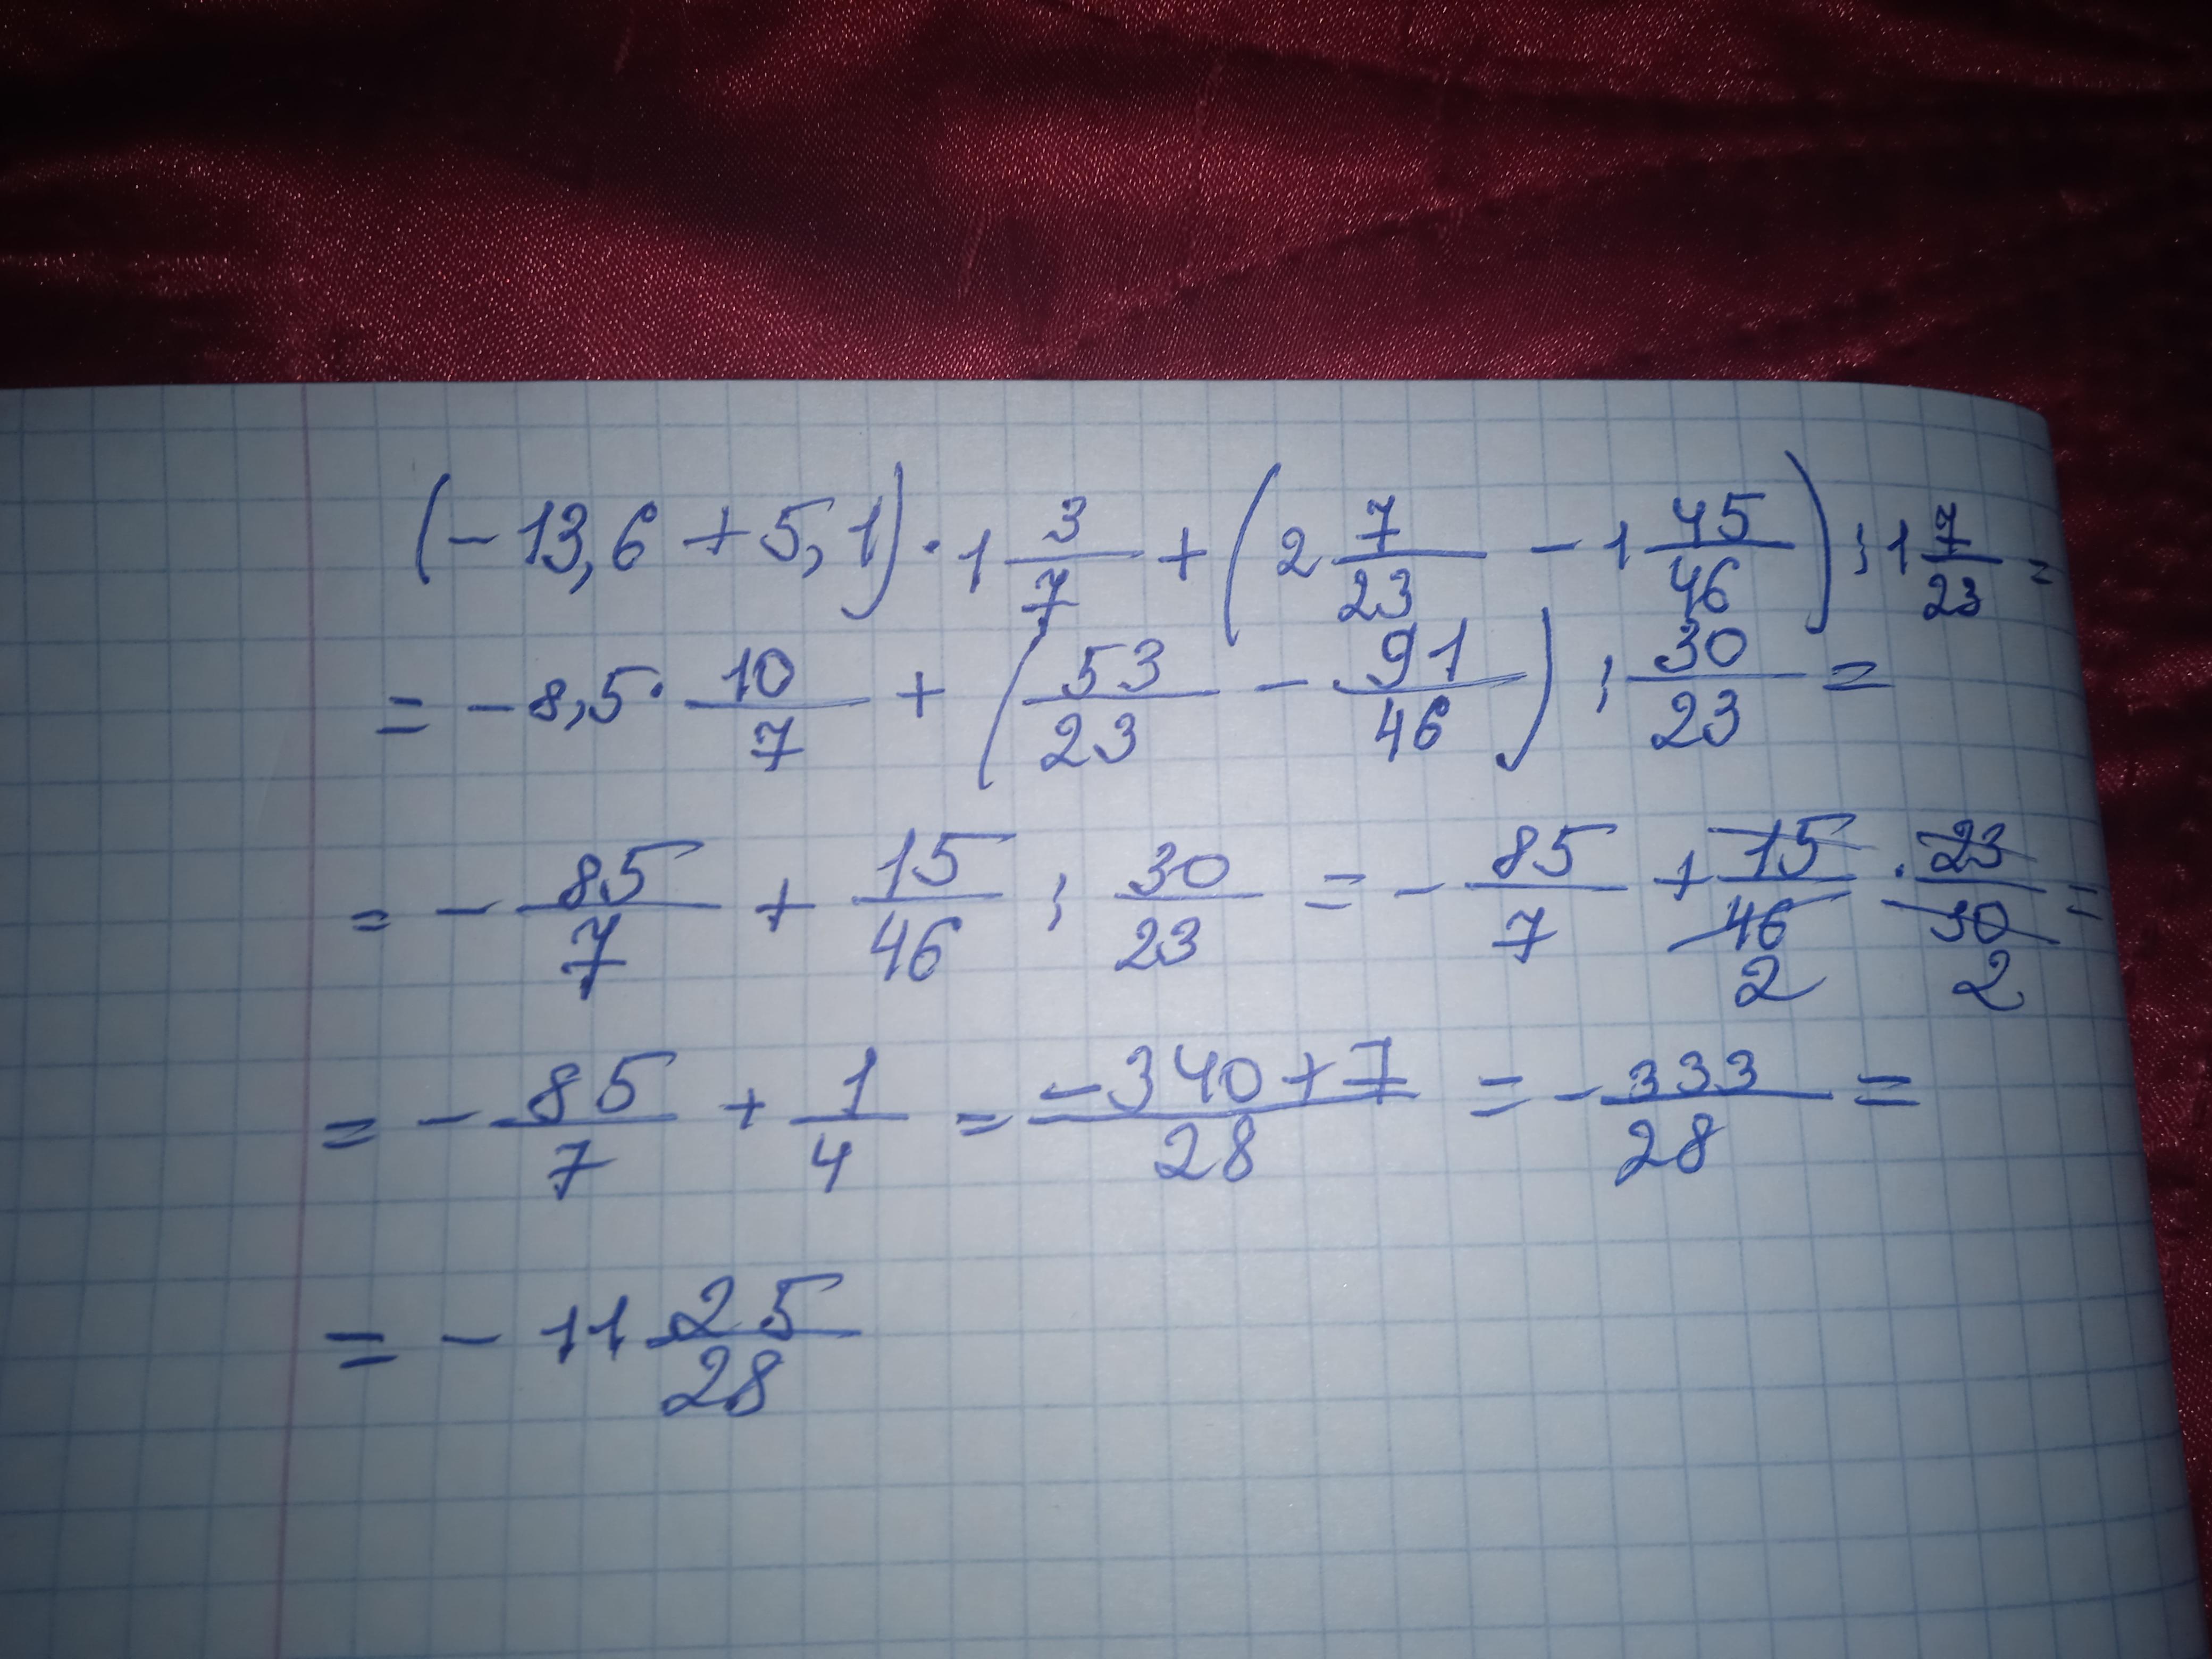 (-13,6 + 5,1) · 1 3/7 + (2 7/23 - 1 45/46) : 1 7/23 =
= -8,5 · 10/7 + (53/23 - 91/46) : 30/23 =
= - 85/7 + 15/46 : 30/23 = - 85/7 + 15/46 2 · 23/30 2 =
= - 85/7 + 1/4 = -340+7/28 = - 333/28 =
= - 11 25/28